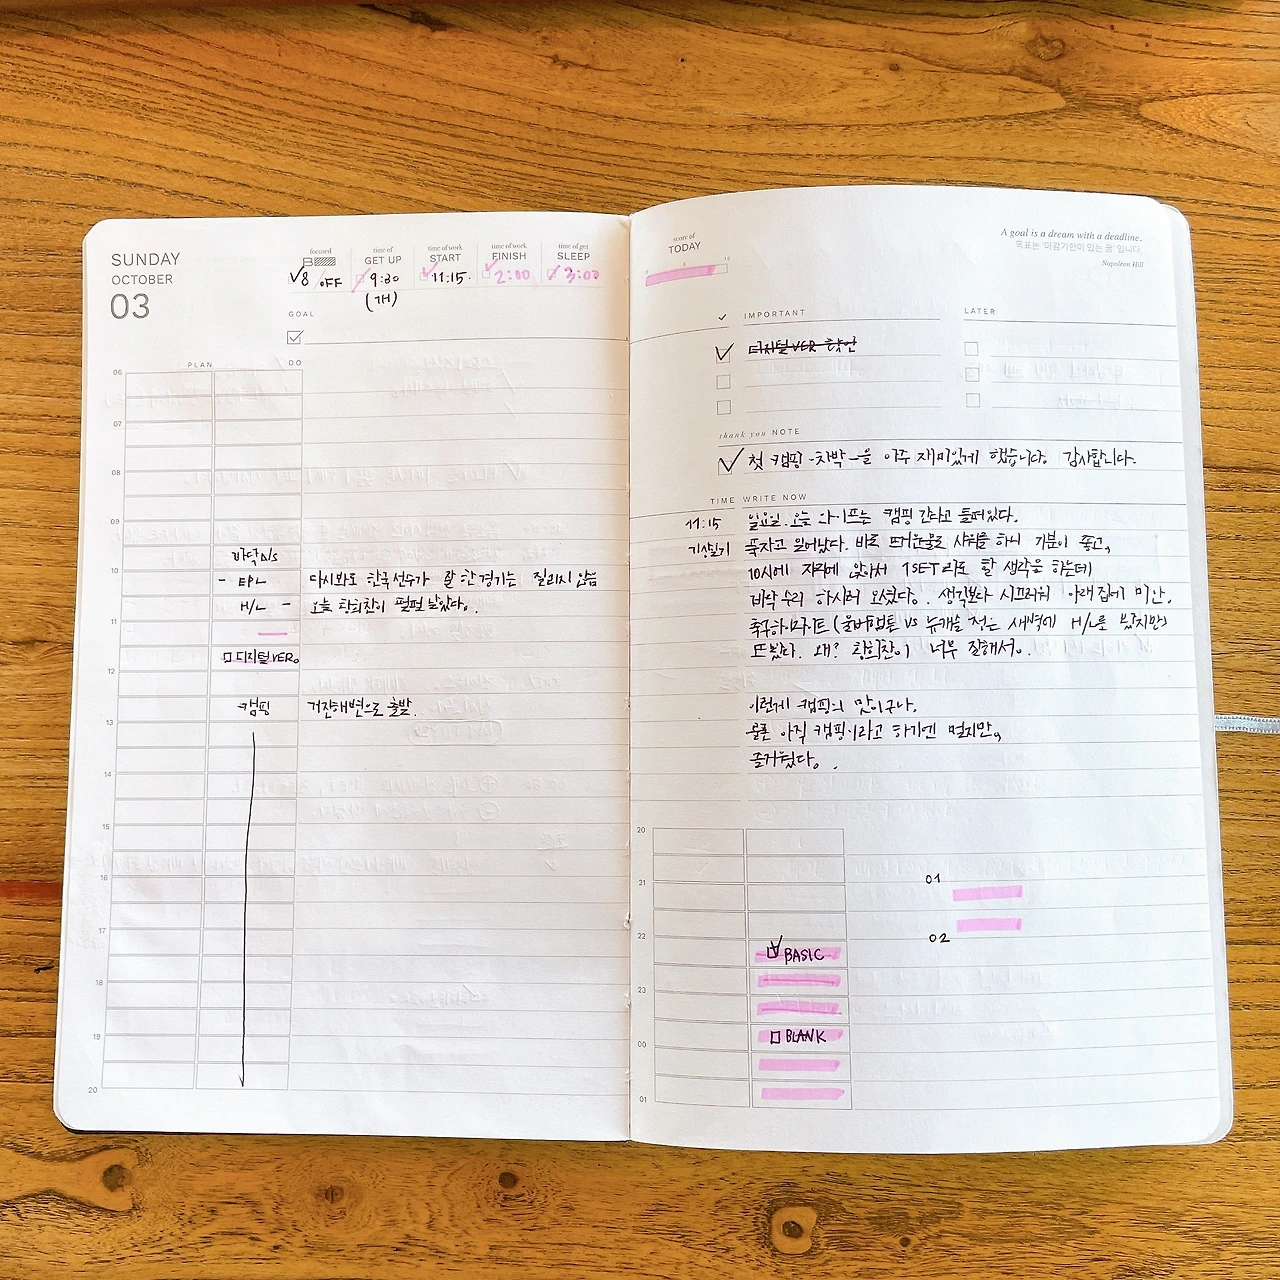 SUNDAY
OCTOBER
03
focused
8 /OFF
time of
GET UP
9:30
(7H)
time of work
START
11:15.
time of work
FINISH
2:00
time of get
SLEEP
3:00
GOAL
PLAN DO
06
07
08
09
바닥 A/S
10
- EPL 다시봐도 한국선수가 잘한 경기는 질리지 않음
H/L - 오늘 황희찬이 펄펄 날았다.
11
디지털 VER.
12
캠핑 거진해변으로 출발.
13
14
15
16
17
18
19
20
score of
TODAY
0 5 10
A goal is a dream with a deadline.
목표는 '마감기한이 있는 꿈' 입니다.
Napoleon Hill
IMPORTANT LATER
디지털 VER 확인
thank you NOTE
첫 캠핑 -차박-을 아주 재미있게 했습니다. 감사합니다.
TIME WRITE NOW
11:15 일요일. 오늘 와이프는 캠핑 간다고 들떠있다.
기상일기 푹자고 일어났다. 바로 뜨거운물로 샤워를 하니 기분이 좋고,
10시에 자리에 앉아서 1SET라도 할 생각을 하는데
바닥수리 하시러 오셨다. 생각보다 시끄러워 아래집에 미안.
축구하이라이트 (울버햄튼 VS 뉴캐슬 정은 새벽에 H/L를 봤지만)
또봤다. 왜? 황희찬이 너무 잘해서.
이런게 캠핑의 맛이구나.
물론 아직 캠핑이라고 하기엔 멀지만,
즐거웠다.
20
21
22
BASIC
23
00
BLANK
01
01
02